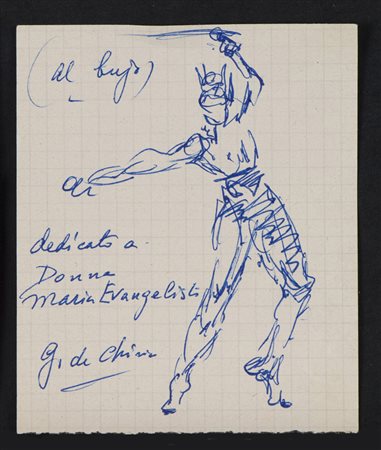 (al bujo)
dedicato a
Donna
Maria Evangelisti
G. de Chirico